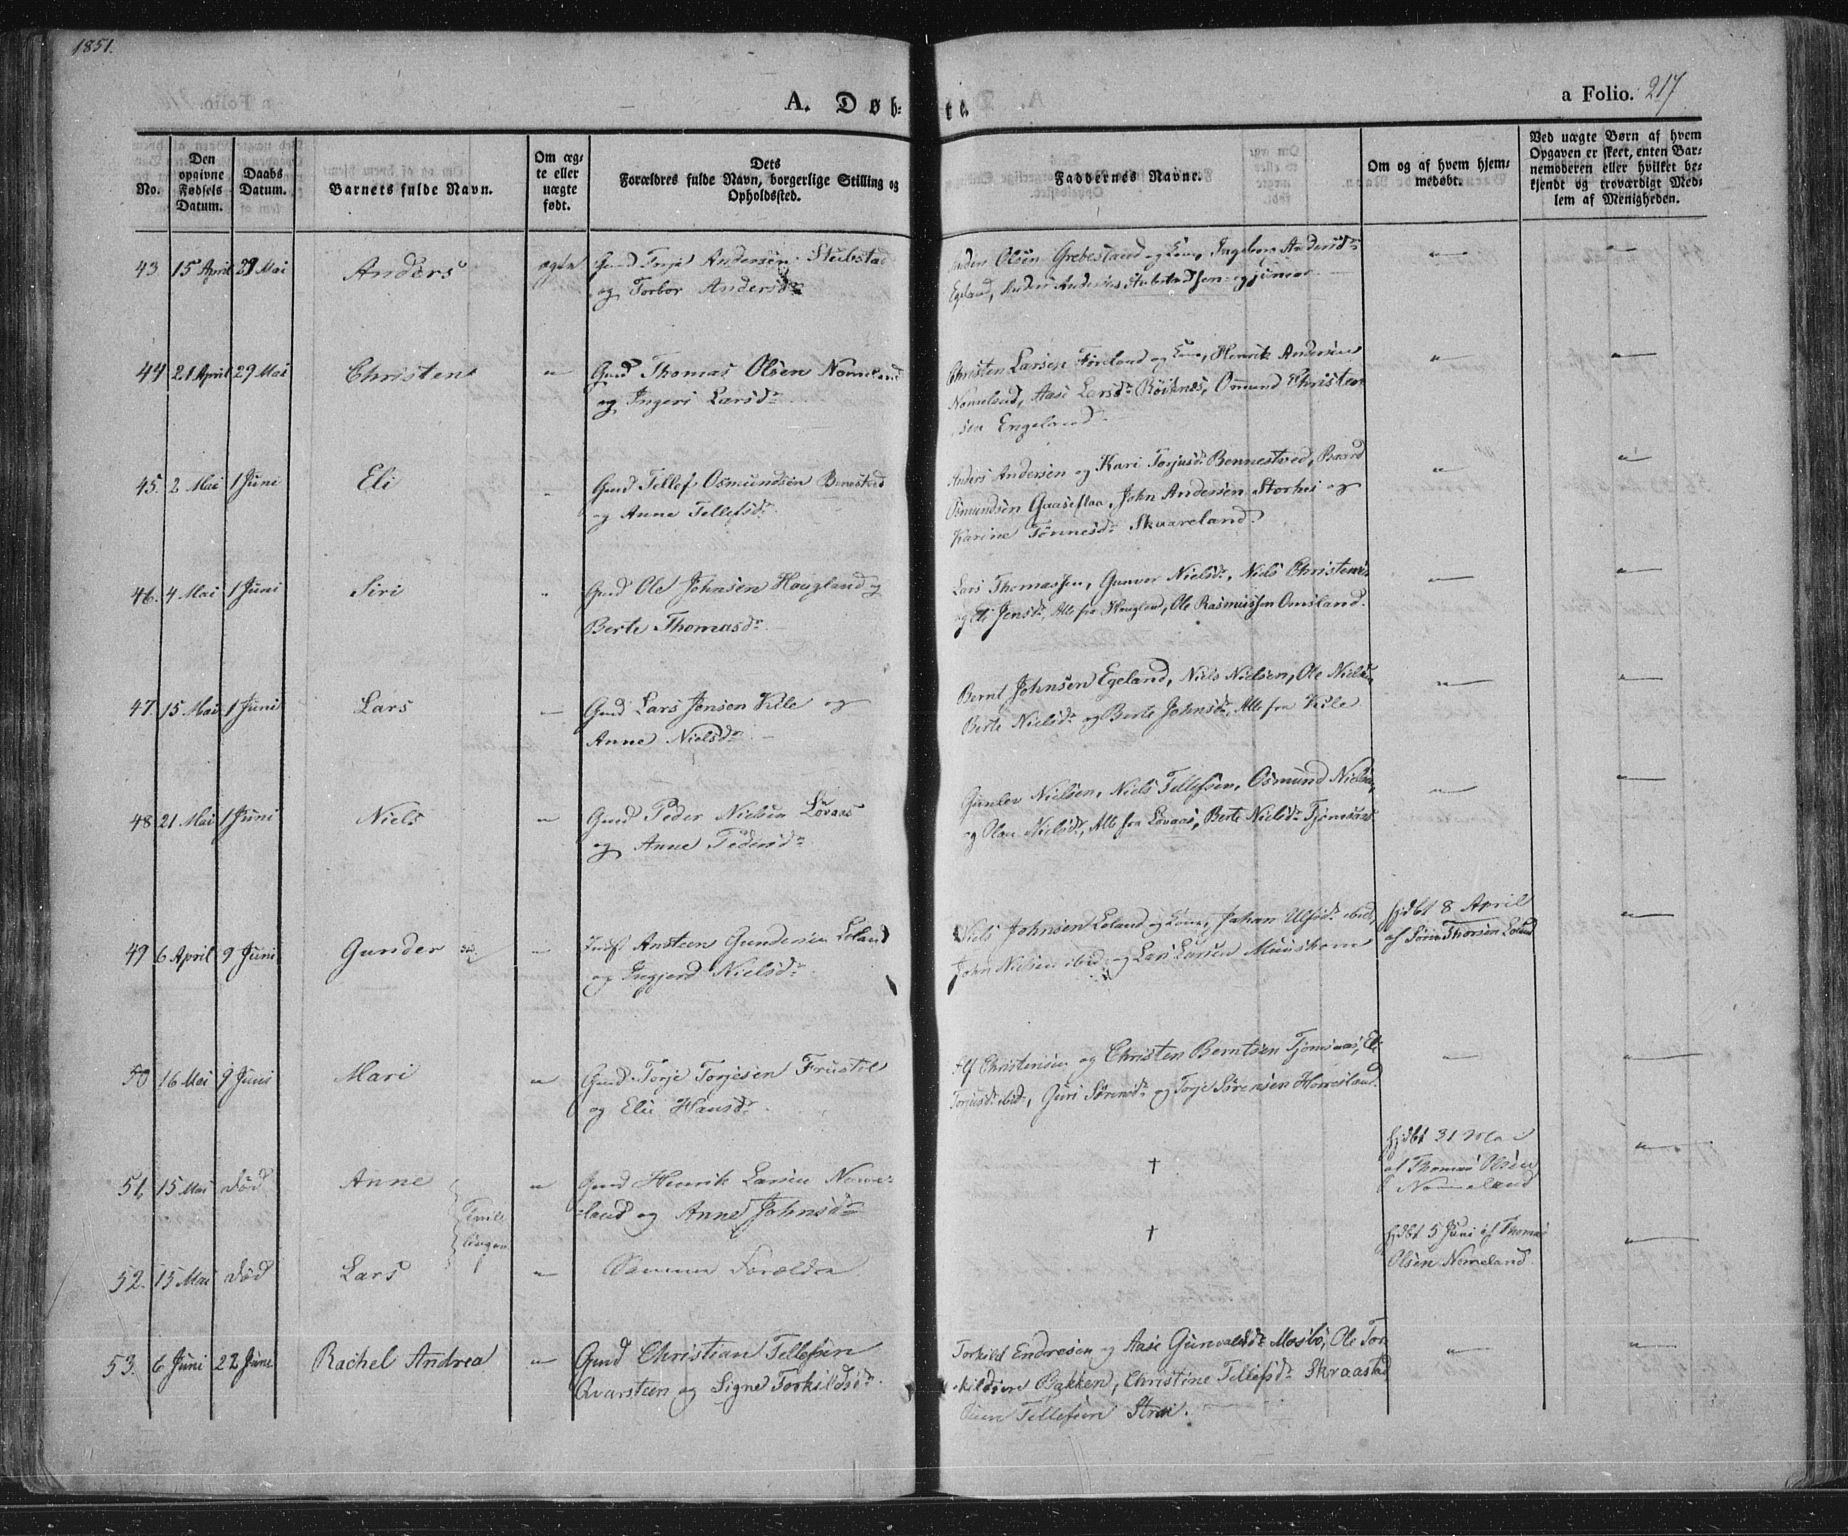 1851.
A. Døb-
te.
a Folio. 217
No.
Den opgivne Fødsels Datum.
Daabs Datum.
Barnets fulde Navn.
Om ægte eller uægte født.
Dets Forældres fulde Navn, borgerlige Stilling og Opholdssted.
Faddernes Navne.
Om og af hvem hjemmedøbt.
Ved uægte Børn af hvem Opgaven er skeet, enten Barnemoderen eller hvilket bekjendt og troværdigt Medlem af Menigheden.
43 15 April 29 Mai Anders ægte Gmd Torje Andersen Stubstad
og Torbor Andersdr
Olsen Grebestand og Kone, Ingeborg Andersdr
Egeland, Anders Andersen
44 21 April 29 Mai Christen " Gmd Thomas Olsen Nomeland
og Ingeri Larsdr
Christen Larsen Føreland og Kone, Henrik Andersen "
Nomeland, Aase Larsdr Røiknes, Osmund Christen
sen Engeland
45. 2 Mai 1 Juni Eli " Gmd Tellef Osmundsen Benestved
og Anne Tellefsdr
Anders Andersen og Kari Torjusdr Bennestved, Baard "
Osmundsen Gaaseflaa, John Andersen Storhei og
Karine Tønnesdr Skaareland.
46. 4 Mai 1 Juni Siri " Gmd Ole Johnsen Haugland og
Berte Thomasdr
Lars Thomassen, Gunver Nielsdr, Niels Christensen "
og Eli Jensdr, Alle fra Haugland, Ole Rasmussen Omsland.
47. 15 Mai 1 Juni Lars — Gmd Lars Jensen Kile og
Anne Nielsdr
Bernt Johnsen Egeland, Niels Nielsen, Ole Nielsen "
Berte Nielsdr og Berte Johnsdr, Alle fra Kile
48 21 Mai 1 Juni Niels " Gmd Peder Nielsen Løvaas
og Anne Pedersdr
Gunlev Nielsen, Niels Tellefsen, Osmund Nielsen, "
og Olau Nielsdr, Alle fra Løvaas, Berte Nielsdr Tjomsaas
49 6 April 9 Juni Gunder — Indst Ansteen Gundersen Loland
og Ingjerd Nielsdr
Niels Johnsen Loland og Kone, Johan Ulfsdr ibid,
John Nielsen ibid og Lars Larsen Muuskom
hjdbt 8 April
af Søren Thorsen Loland
50 16 Mai 9 Juni Mari " Gmd Torje Torjesen Frustøl
og Elie Hansdr
Alf Christensen og Christen Berntsen Tjomsaas, Eli
Torjusdr ibid, Guri Sørensdr og Torje Sørensen Homesland.
51. 15 Mai død Anne " Gmd Henrik Larsen Nome-
land og Anne Johnsdr
†
hjdbt 31 Mai
af Thomas Olsen
Nomeland
Tvil-
linger
52. 15 Mai død Lars " Samme Forældre
†
hjdbt 5 Juni af Thomas
Olsen Nomeland
53. 6 Juni 22 Juni Rachel Andrea " Gmd Christian Tellefsen
Qvarsteen og Signe Torkildsdr
Torkild Endresen og Aase Gunvaldsdr Mosbø, Ole Tor-
kildsen Bakken, Christine Tellefsdr Skraastad
Tellefsen Straie.